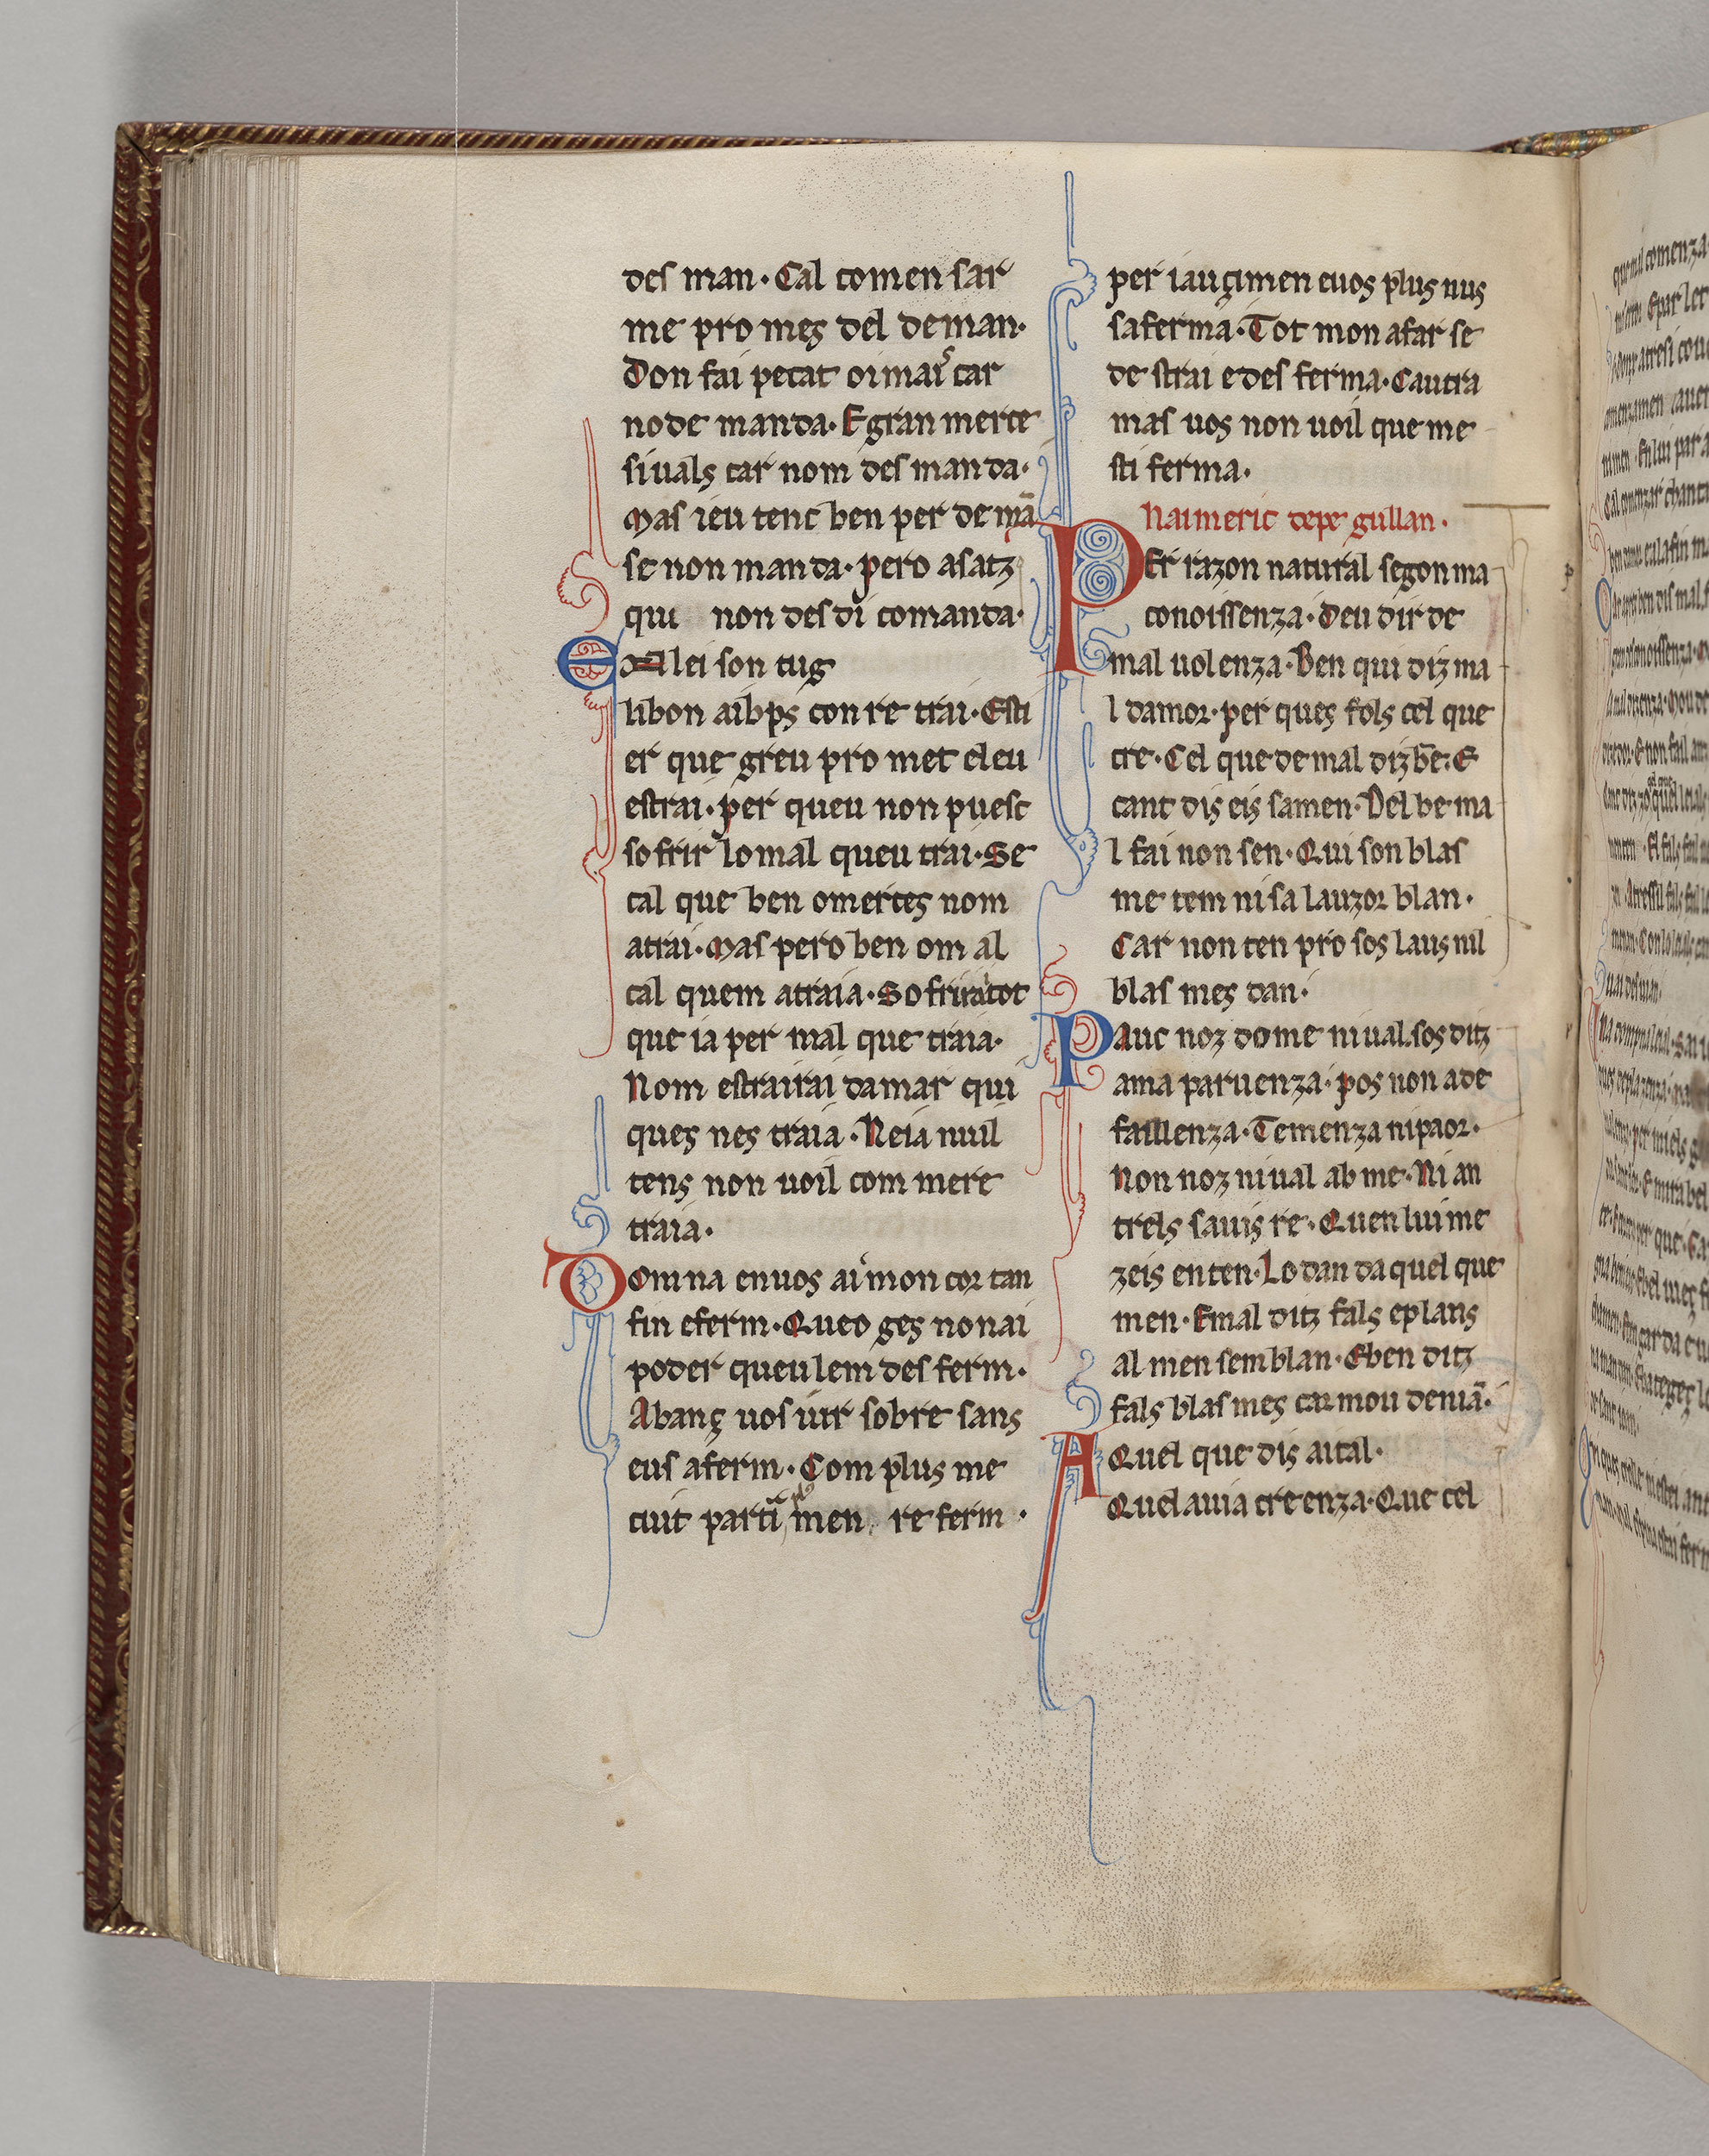 des man· Cal comen sar
me pro meç del deman·
Don fai pecat oimais car
no de manda· E gran merce
siuals car nom des manda·
Mas ieu tenc ben per de mã
se non manda· pero asatz
qui non des di comanda·
E lei son tug
li bon aibs con re trai· Esti
er que greu pro met eleu
estrai· per queu non puesc
sofrir lo mal queu trai· Se
cal que ben o merces nom
atrai· Mas pero ben om al
cal quem atraia· Sofrira tot
que ia per mal que traia·
Nom estrairai damar qui
ques nes traia· Neia nuil
tens non uoil com mere
traia·
Domna en uos ai mon cor tan
fin e ferm· Queo ges nonai
poder queu lem des ferm·
Abanç uos iur sobre sans
eus aferm· Com plus me
cuit partir men re ferm·
per iauçimen e uos plus nus
saferma· Tot mon afar se
de strai e des ferma· Cautra
mas uos non uoil que me
sti ferma·
Naimeric de pe gullan·
PEr razon natural segon ma
conoissenza· Deu dir de
mal uolenza· Ben qui diz ma
l damor· per ques fols cel que
cre· Cel que de mal diz bẽ· E
cant dis eis samen· Del be ma
l fai non sen· Qui son blas
me tem ni sa lauzor blan·
Car non ten pro sos laus nil
blas mes dan·
Pauc noz do me ni ual· sos ditz
a ma paruenza· pos non a de
faillenza· Temenza ni paor·
Non noz ni ual ab me· Ni an
trels sauis re· Quen lui me
zeis enten· Lo dan da quel que
men· E mal ditz fals e plans
al men semblan· E ben ditz
fals blas mes car mou deniã·
AQuel que dis aital·
Quel auia cre enza· Que cel